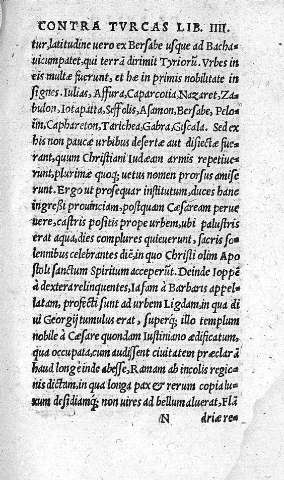 CONTRA TVRCAS LIB. IIII.
tur, latitudine uero ex Bersabe usque ad Bacha⸗
uicum patet, qui terrā dirimit Tyriorū. Vrbes in
eis multæ fuerunt, et hæ in primis nobilitate in
signes. Iulias, Affura, Caparcotia, Nazaret, Za⸗
bulon, Iotapatta, Seffolis, Asamon, Bersabe, Pelo⸗
im, Caphareton, Tarichea, Gabra, Giscala. Sed ex
his non paucæ urbibus desertæ aut disiectæ fue⸗
rant, quum Christiani Iudæam armis repetiue⸗
runt, plurimæ quoq; uetus nomen prorsus amise
runt. Ergo ut prosequar institutum, duces hanc
ingressi prouinciam, postquam Cæsaream perue
nere, castris positis prope urbem, ubi palustris
erat aqua, dies complures quieuerunt, sacris so⸗
lennibus celebrantes diē, in quo Christi olim Apo
stoli sanctum Spiritum acceperūt. Deinde Ioppē
à dextera relinquentes, Iafam à Barbaris appel⸗
latam, profecti sunt ad urbem Ligdam, in qua di
ui Georgij tumulus erat, superq; illo templum
nobile à Cæsare quondam Iustiniano ædificatum,
qua occupata, cum audissent ciuitatem præclarā
haud longè inde abesse, Ramam ab incolis regio⸗
nis dictum, in qua longa pax & rerum copia lu⸗
xum desidiamq; non uires ad bellum aluerat, Flā
N driæ re⸗